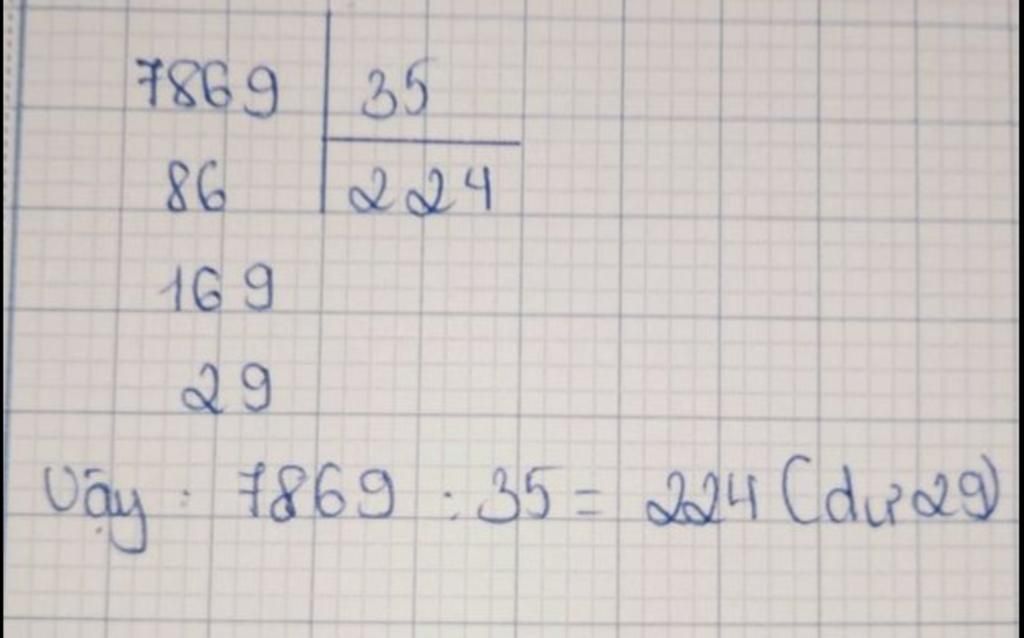 7869 35
86 224
169
29
Vậy : 7869 : 35 = 224 (dư 29)